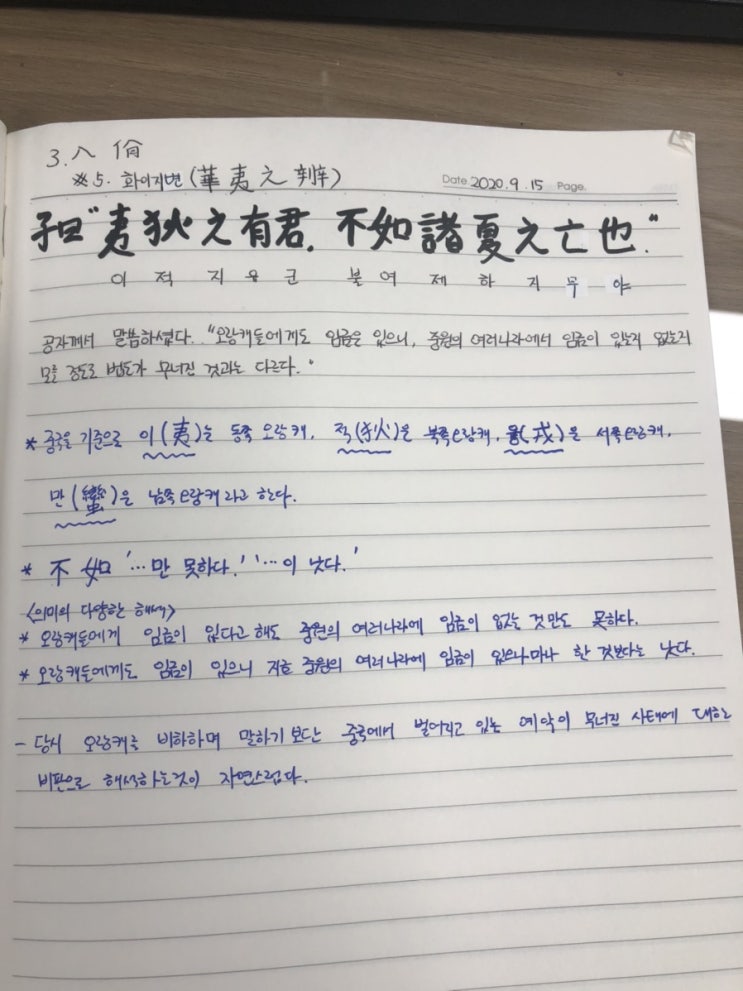 3. 八 佾
※5. 화이지변 (華夷之辨)
Date 2020. 9. 15 Page.
子曰 "夷狄之有君, 不如諸夏之亡也."
이 적 지 유 군 불 여 제 하 지 무 야
공자께서 말씀하셨다. "오랑캐들에게도 임금은 있으니, 중원의 여러나라에서 임금이 있는지 없는지
모를 정도로 법도가 무너진 것과는 다르다."
* 중국을 기준으로 이(夷)는 동쪽 오랑캐, 적(狄)은 북쪽오랑캐, 융(戎)은 서쪽오랑캐,
만(蠻)은 남쪽오랑캐라고 한다.
* 不如 '…만 못하다.' '…이 낫다.'
<의미의 다양한 해석>
* 오랑캐들에게 임금이 있다고 해도 중원의 여러나라에 임금이 없는 것만도 못하다.
* 오랑캐들에게도 임금이 있으니 중원의 여러나라에 임금이 있으나마나 한 것보다는 낫다.
- 당시 오랑캐를 비하하며 말하기 보단 중국에서 벌어지고 있는 예악이 무너진 사태에 대한
비판으로 해석하는것이 자연스럽다.